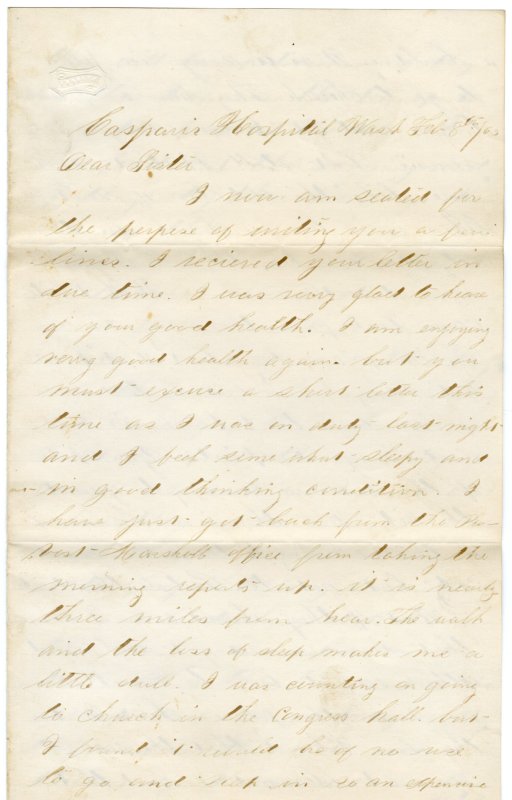 Casparis Hospital Wash Feb 8th /63
Dear Sister
I now am seated for
the purpose of writing you a few
lines. I recieved your letter in
due time. I was very glad to hear
of your good health. I am enjoying
very good health again. but you
must excuse a short letter this
time as I was on duty last night
and I feel some what sleepy and
in good thinking condition. I
have just got back from the Pro-
vost Marshalls office from taking the
morning reports up. it is nearly
three miles from hear. The walk
and the loss of sleep makes me a
little dull. I was counting on going
to church in the Congress hall. but
I found it would be of no use
to go and in so an expensive